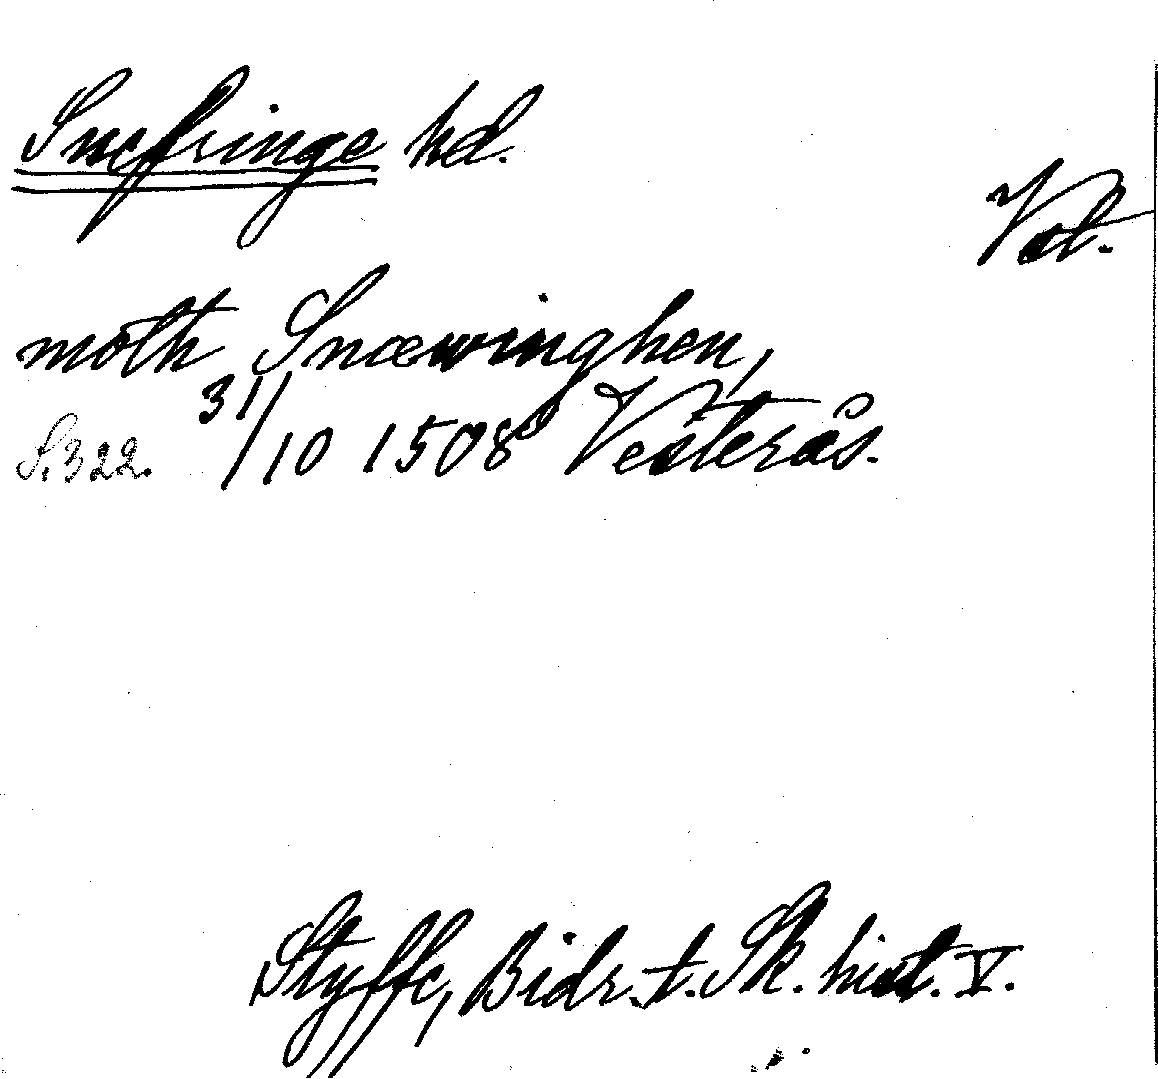 Snefringe hd.
Vstl.
moth Snæwinghen,
S. 322. 31/10 1508 Vesterås.
Styffe, Bidr. t. Sk. hist. V.